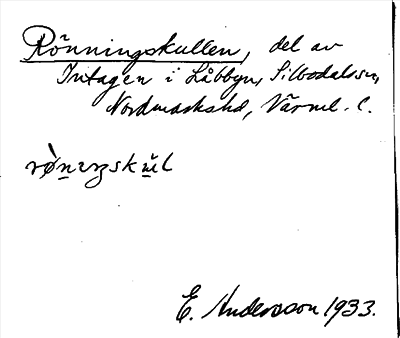 Rönningskullen, del av
Intagen i Låbbyn, Silbodals sn,
Nordmarks hd, Värml. l.
rò̀nıŋskŭl
E. Andersson 1933.